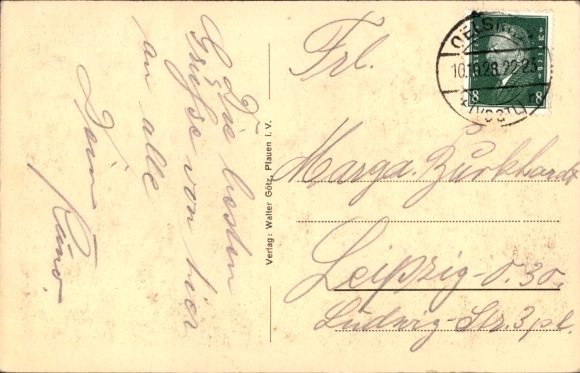 Die besten
Grüße von hier
an alle
Dein
Verlag: Walter Götz, Plauen i. V.
Frl.
Marga. Burkhardt
Leipzig-O. 30.
Ludwig-Str. 3 pl.
OELSN
10.10.28.22-23
(VOGTL)
8 8